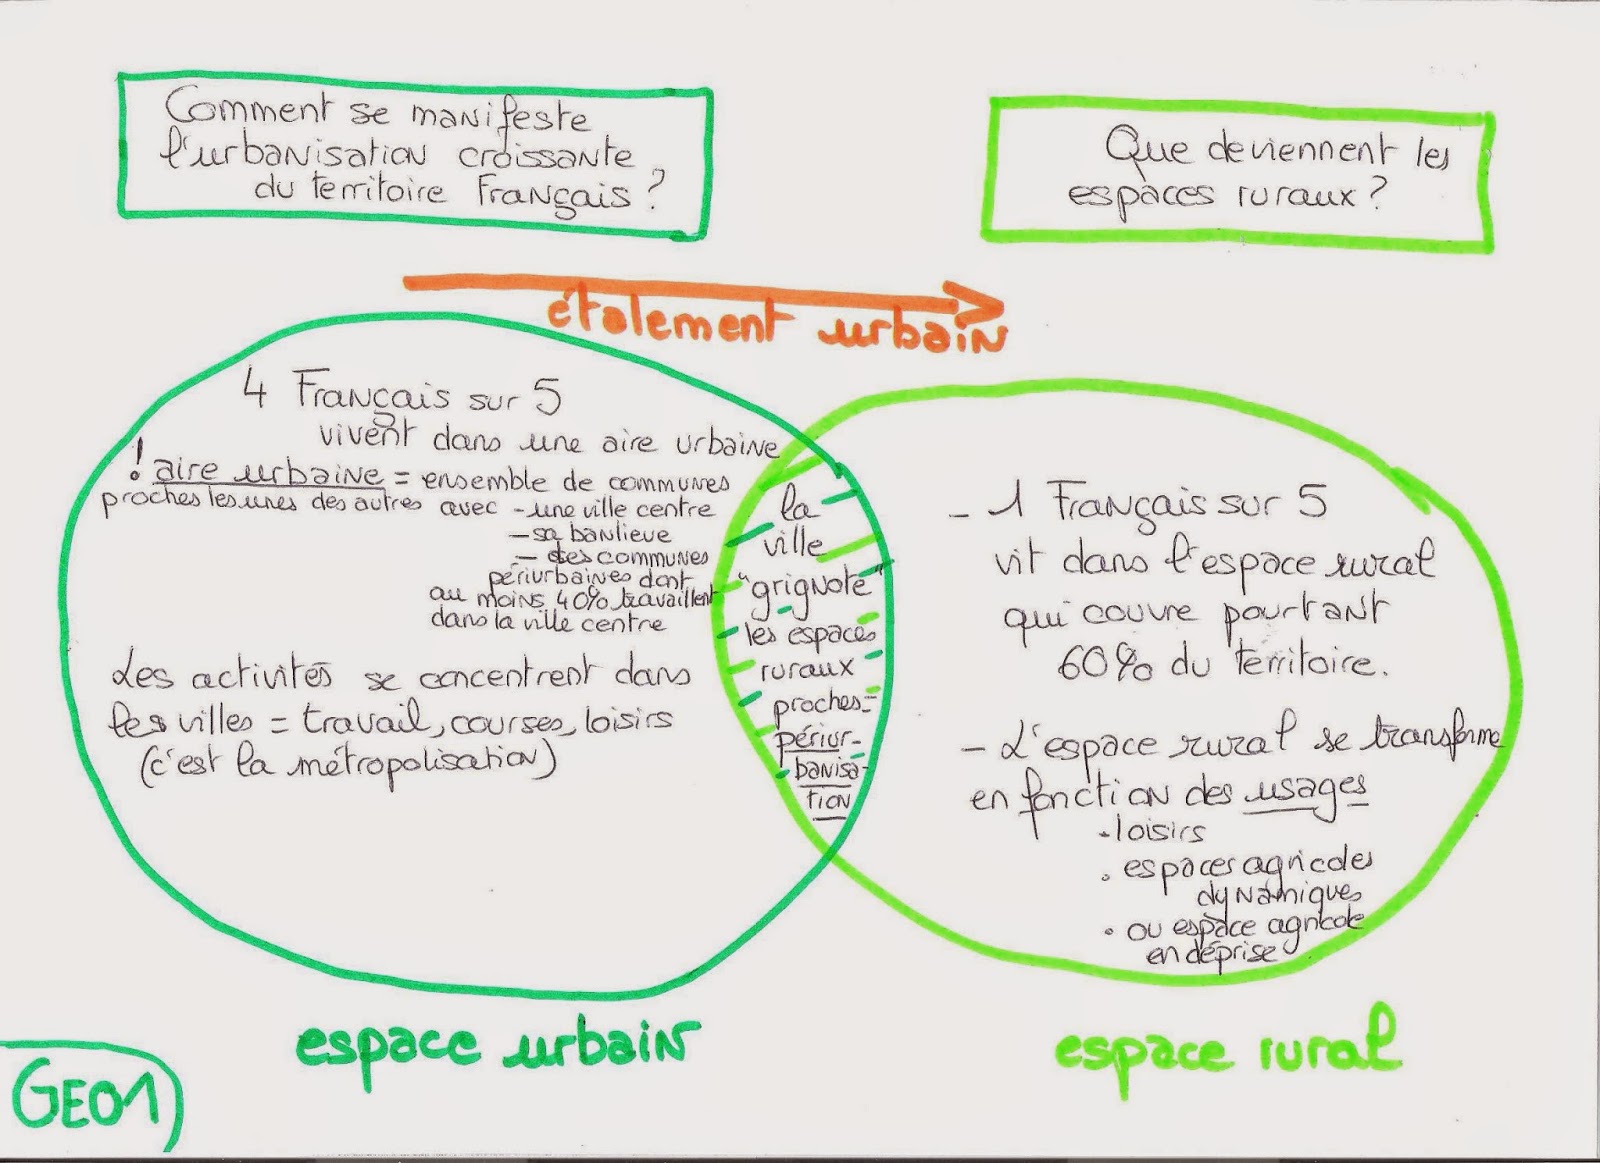 Comment se manifeste
l'urbanisation croissante
du territoire Français ?
Que deviennent les
espaces ruraux ?
étalement urbain
4 Français sur 5
vivent dans une aire urbaine
! aire urbaine = ensemble de communes
proches les unes des autres avec - une ville centre
- sa banlieue
- des communes
périurbaines dont
au moins 40% travaillent
dans la ville centre
Les activités se concentrent dans
les villes = travail, courses, loisirs
(c'est la métropolisation)
la
ville
"grignote"
les espaces
ruraux
proches =
périur-
banisa-
tion
- 1 Français sur 5
vit dans l'espace rural
qui couvre pourtant
60% du territoire.
- L'espace rural se transforme
en fonction des usages
. loisirs
. espaces agricoles
dynamiques
. ou espace agricole
en déprise
espace urbain
espace rural
GEO1